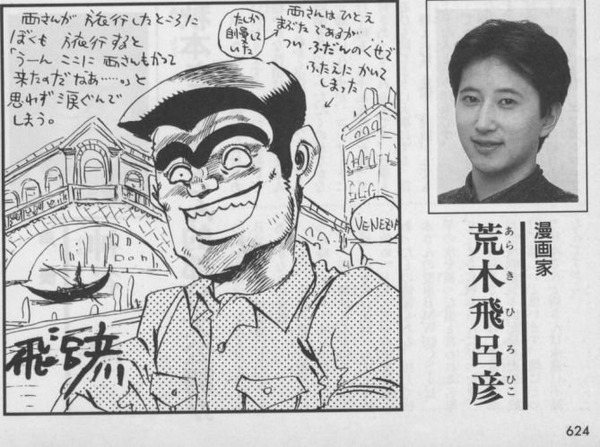 両さんが旅行したところに
ぼくも旅行すると
「うーん ここに両さんもかつて
来たのだなあ……。」と
思わず涙ぐんで
しまう。
たしか
自慢して
いた
両さんはひとえ
まぶたであるが…
つい ふだんのくせで
ふたえにかいて
しまった
VENEZIA
飛呂彦
漫画家
荒木飛呂彦
あら き ひ ろ ひこ
624